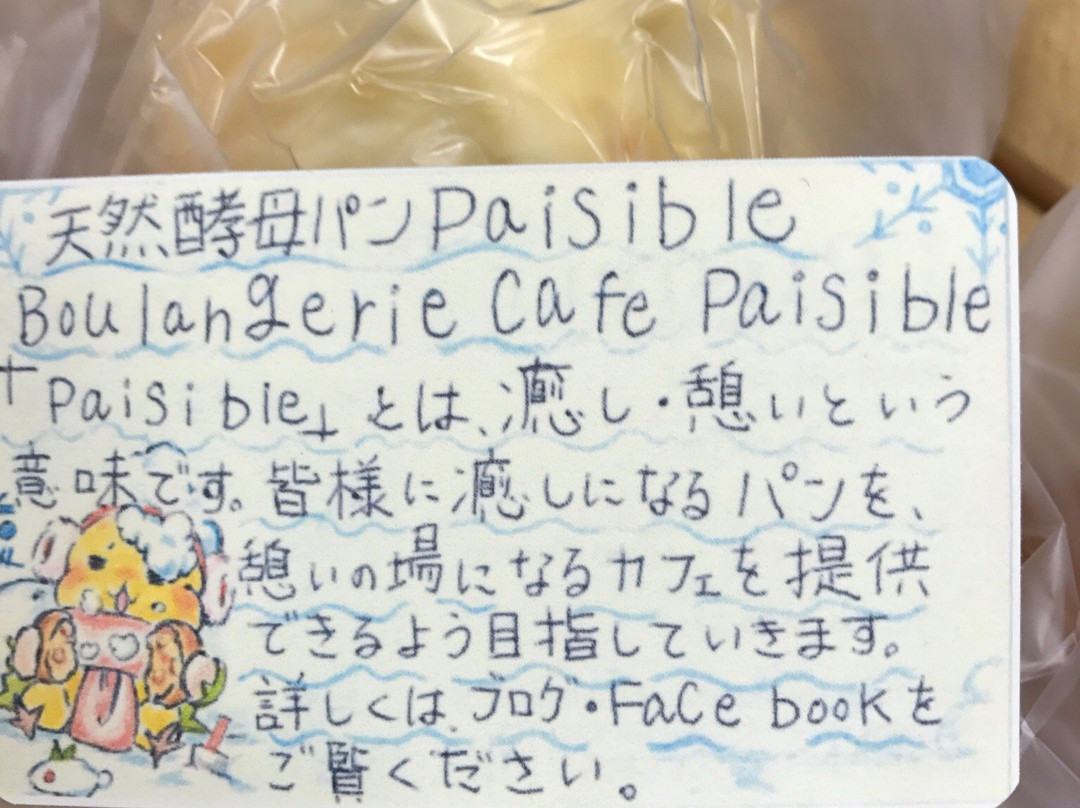 天然酵母パンPaisible
Boulangerie Cafe Paisible
「Paisible」とは、癒し・憩いという
意味です。皆様に癒しになるパンを、
憩いの場になるカフェを提供
できるよう目指していきます。
詳しくは、ブログ・FaCe booKを
ご覧ください。